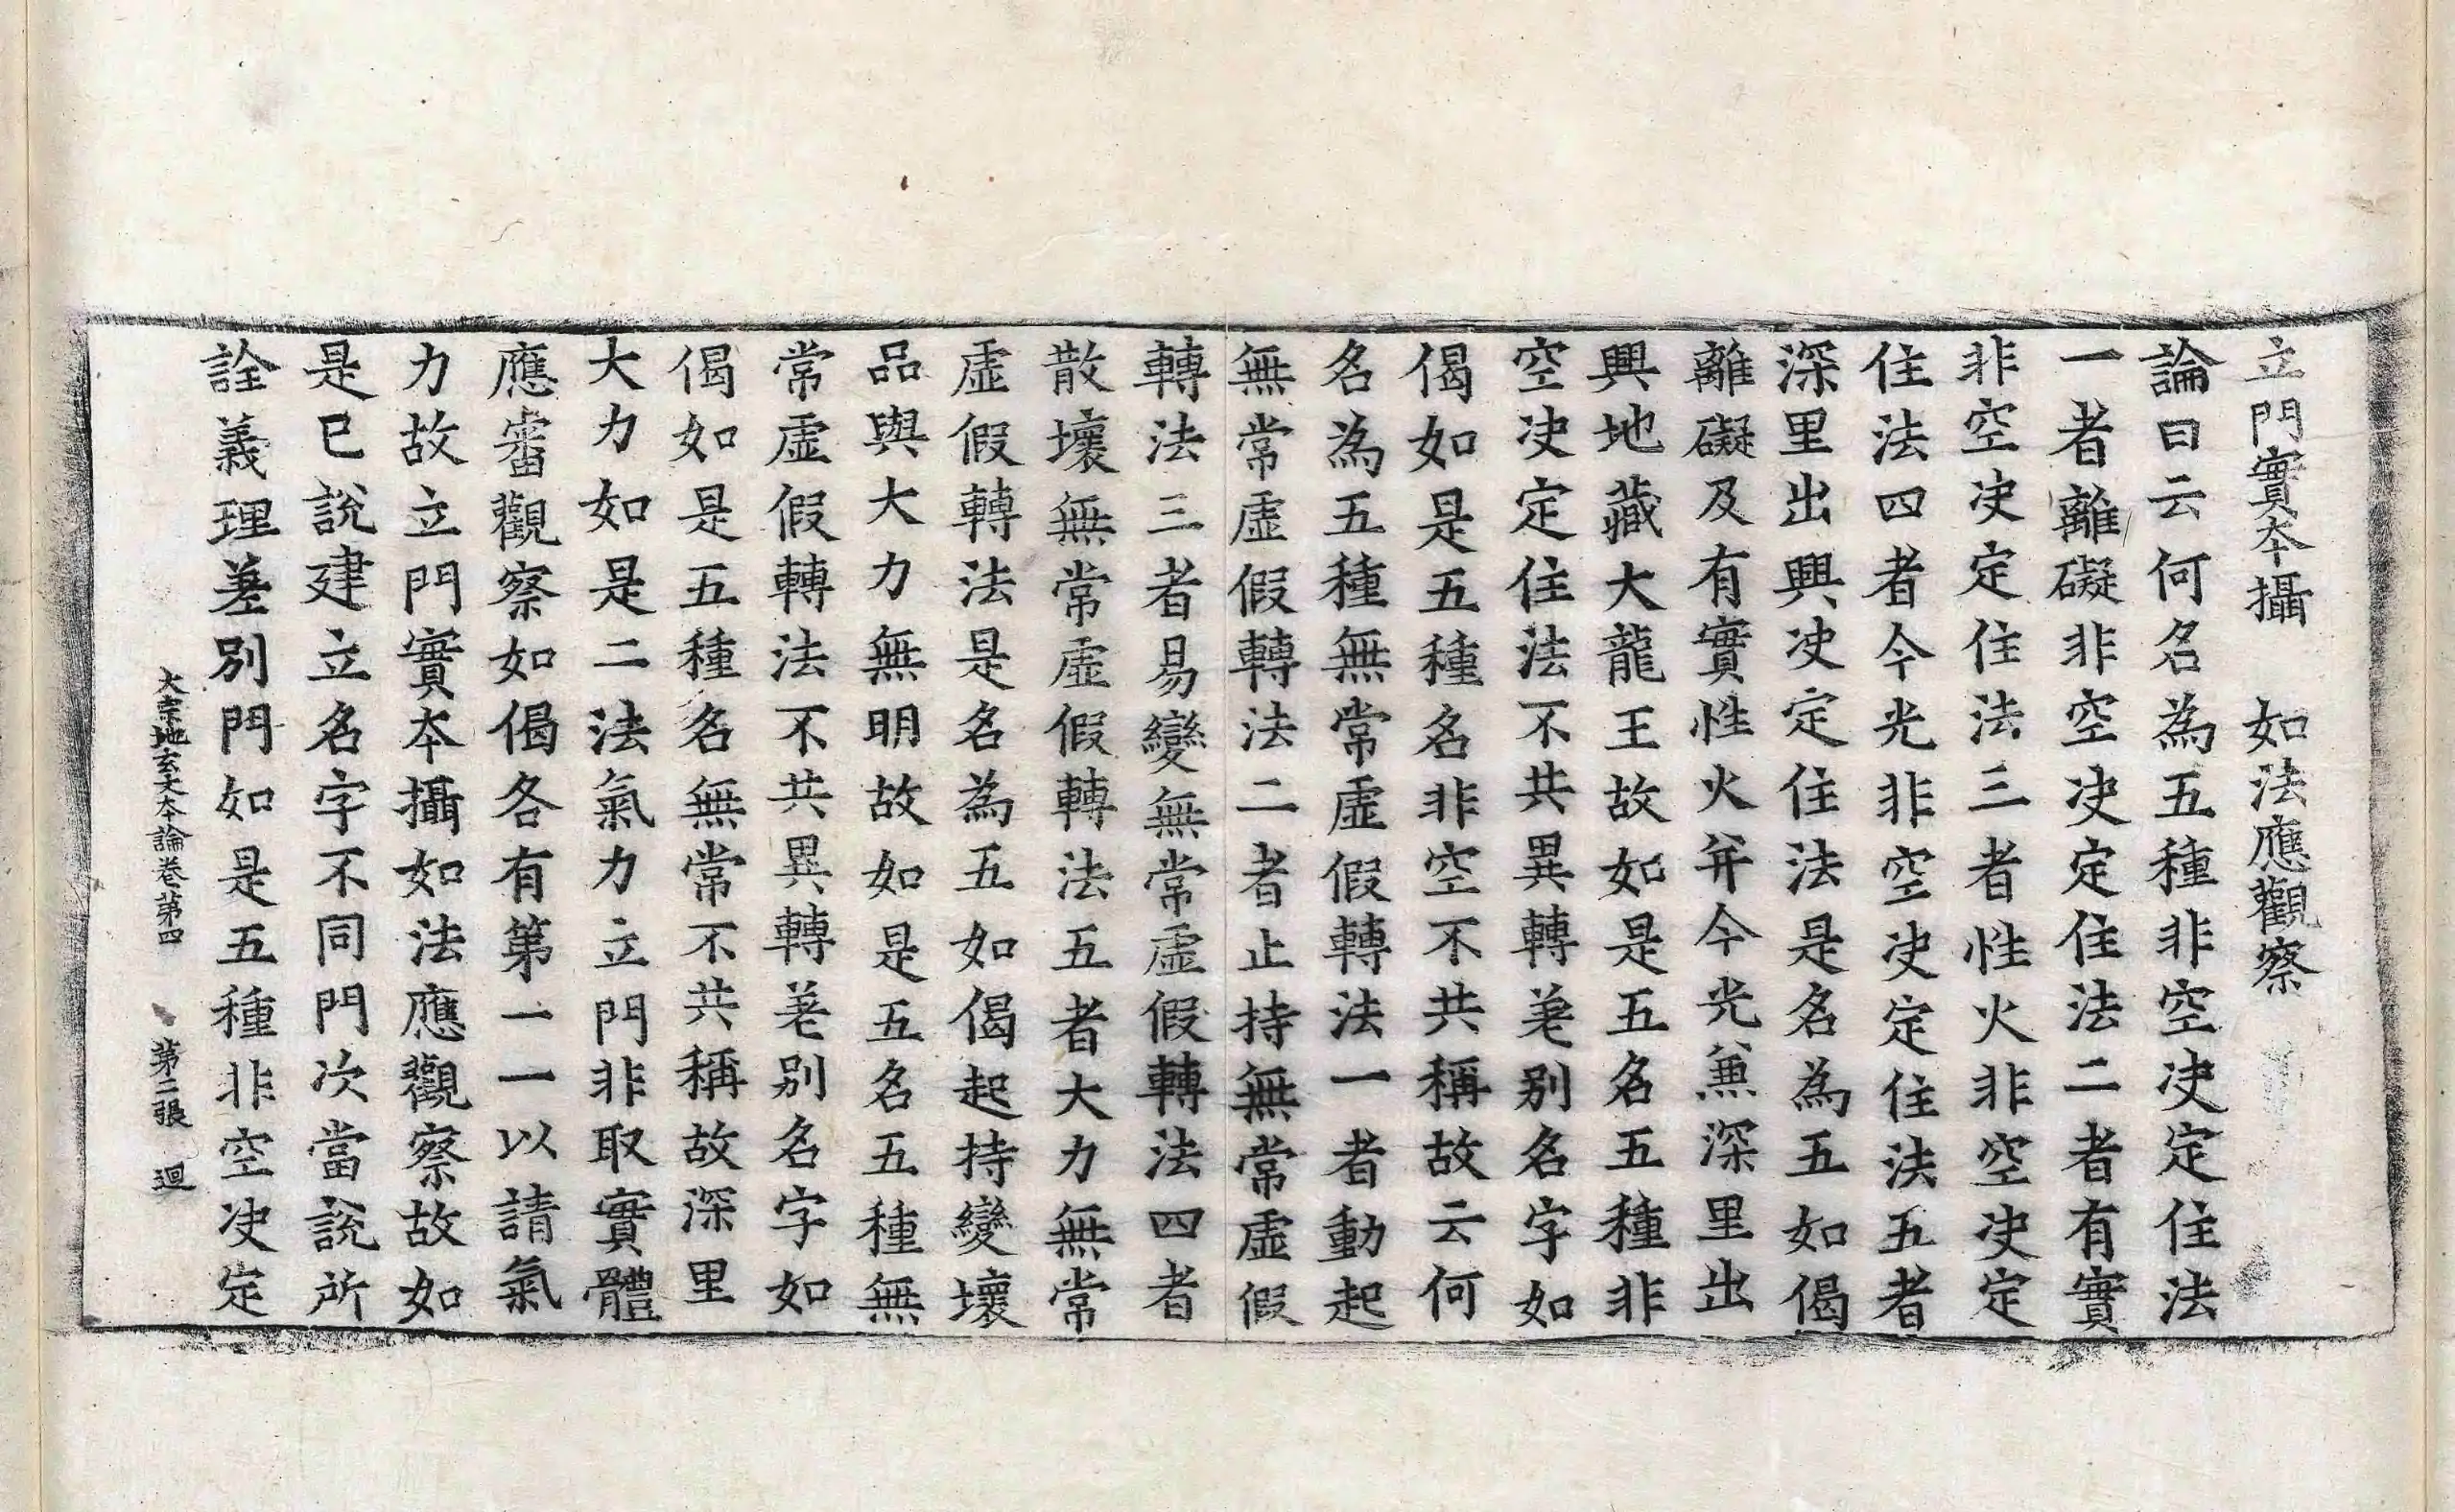 立門實本攝　如法應觀察
論曰云何名為五種非空决定住法
一者離礙非空决定住法二者有實
非空决定住法三者性火非空决定
住法四者今光非空决定住法五者
深里出興决定住法是名為五如偈
離礙及有實性火并今光兼深里出
興地藏大龍王故如是五名五種非
空决定住法不共異轉差别名字如
偈如是五種名非空不共稱故云何
名為五種無常虛假轉法一者動起
無常虛假轉法二者止持無常虛假
轉法三者易變無常虛假轉法四者
散壞無常虛假轉法五者大力無常
虛假轉法是名為五如偈起持變壞
品與大力無明故如是五名五種無
常虛假轉法不共異轉差别名字如
偈如是五種名無常不共稱故深里
大力如是二法氣力立門非取實體
應審觀察如偈各有第一一以請氣
力故立門實本攝如法應觀察故如
是已說建立名字不同門次當說所
詮義理差別門如是五種非空决定
大宗地玄文本論卷第四　第二張　迴